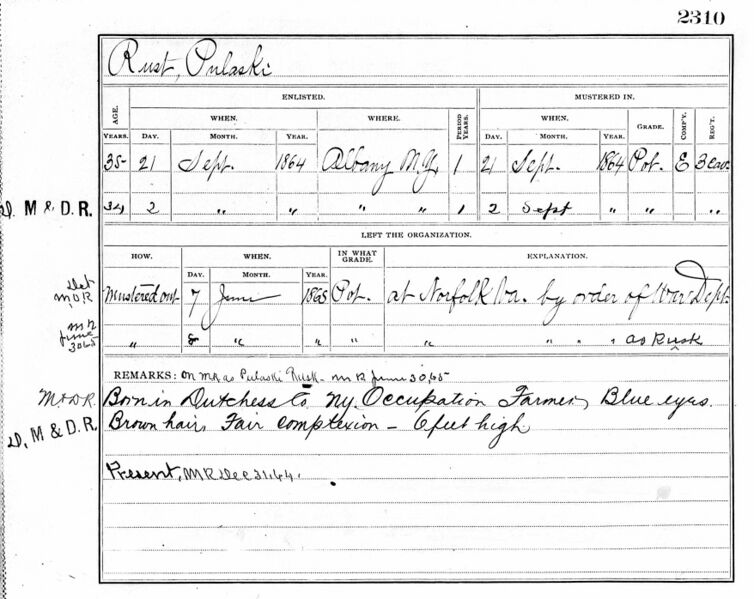 2310
Rust, Pulaski
ENLISTED. MUSTERED IN.
AGE. WHEN. WHERE. PERIOD YEARS. WHEN. GRADE. COMP'Y. REG'T.
YEARS. DAY. MONTH. YEAR. DAY. MONTH. YEAR.
35 21 Sept. 1864 Albany N.Y. 1 21 Sept. 1864 Pvt. E 3 cav.
D. M & D. R. 34 2 " " " " 1 2 Sept " " "
LEFT THE ORGANIZATION.
HOW. WHEN. IN WHAT GRADE. EXPLANATION.
DAY. MONTH. YEAR.
Det M.O.R Mustered out 7 June 1865 Pvt. at Norfolk Va. by order of War Dept.
MR June 30 65 " 8 " " " " " " " as Rusk
REMARKS: On MR as Pulaski Rusk - MR June 30, 65
M & D R. Born in Dutchess Co NY. Occupation Farmer, Blue eyes.
D. M & D. R. Brown hair, Fair complexion - 6 feet high
Present, MR Dec 31, 64.